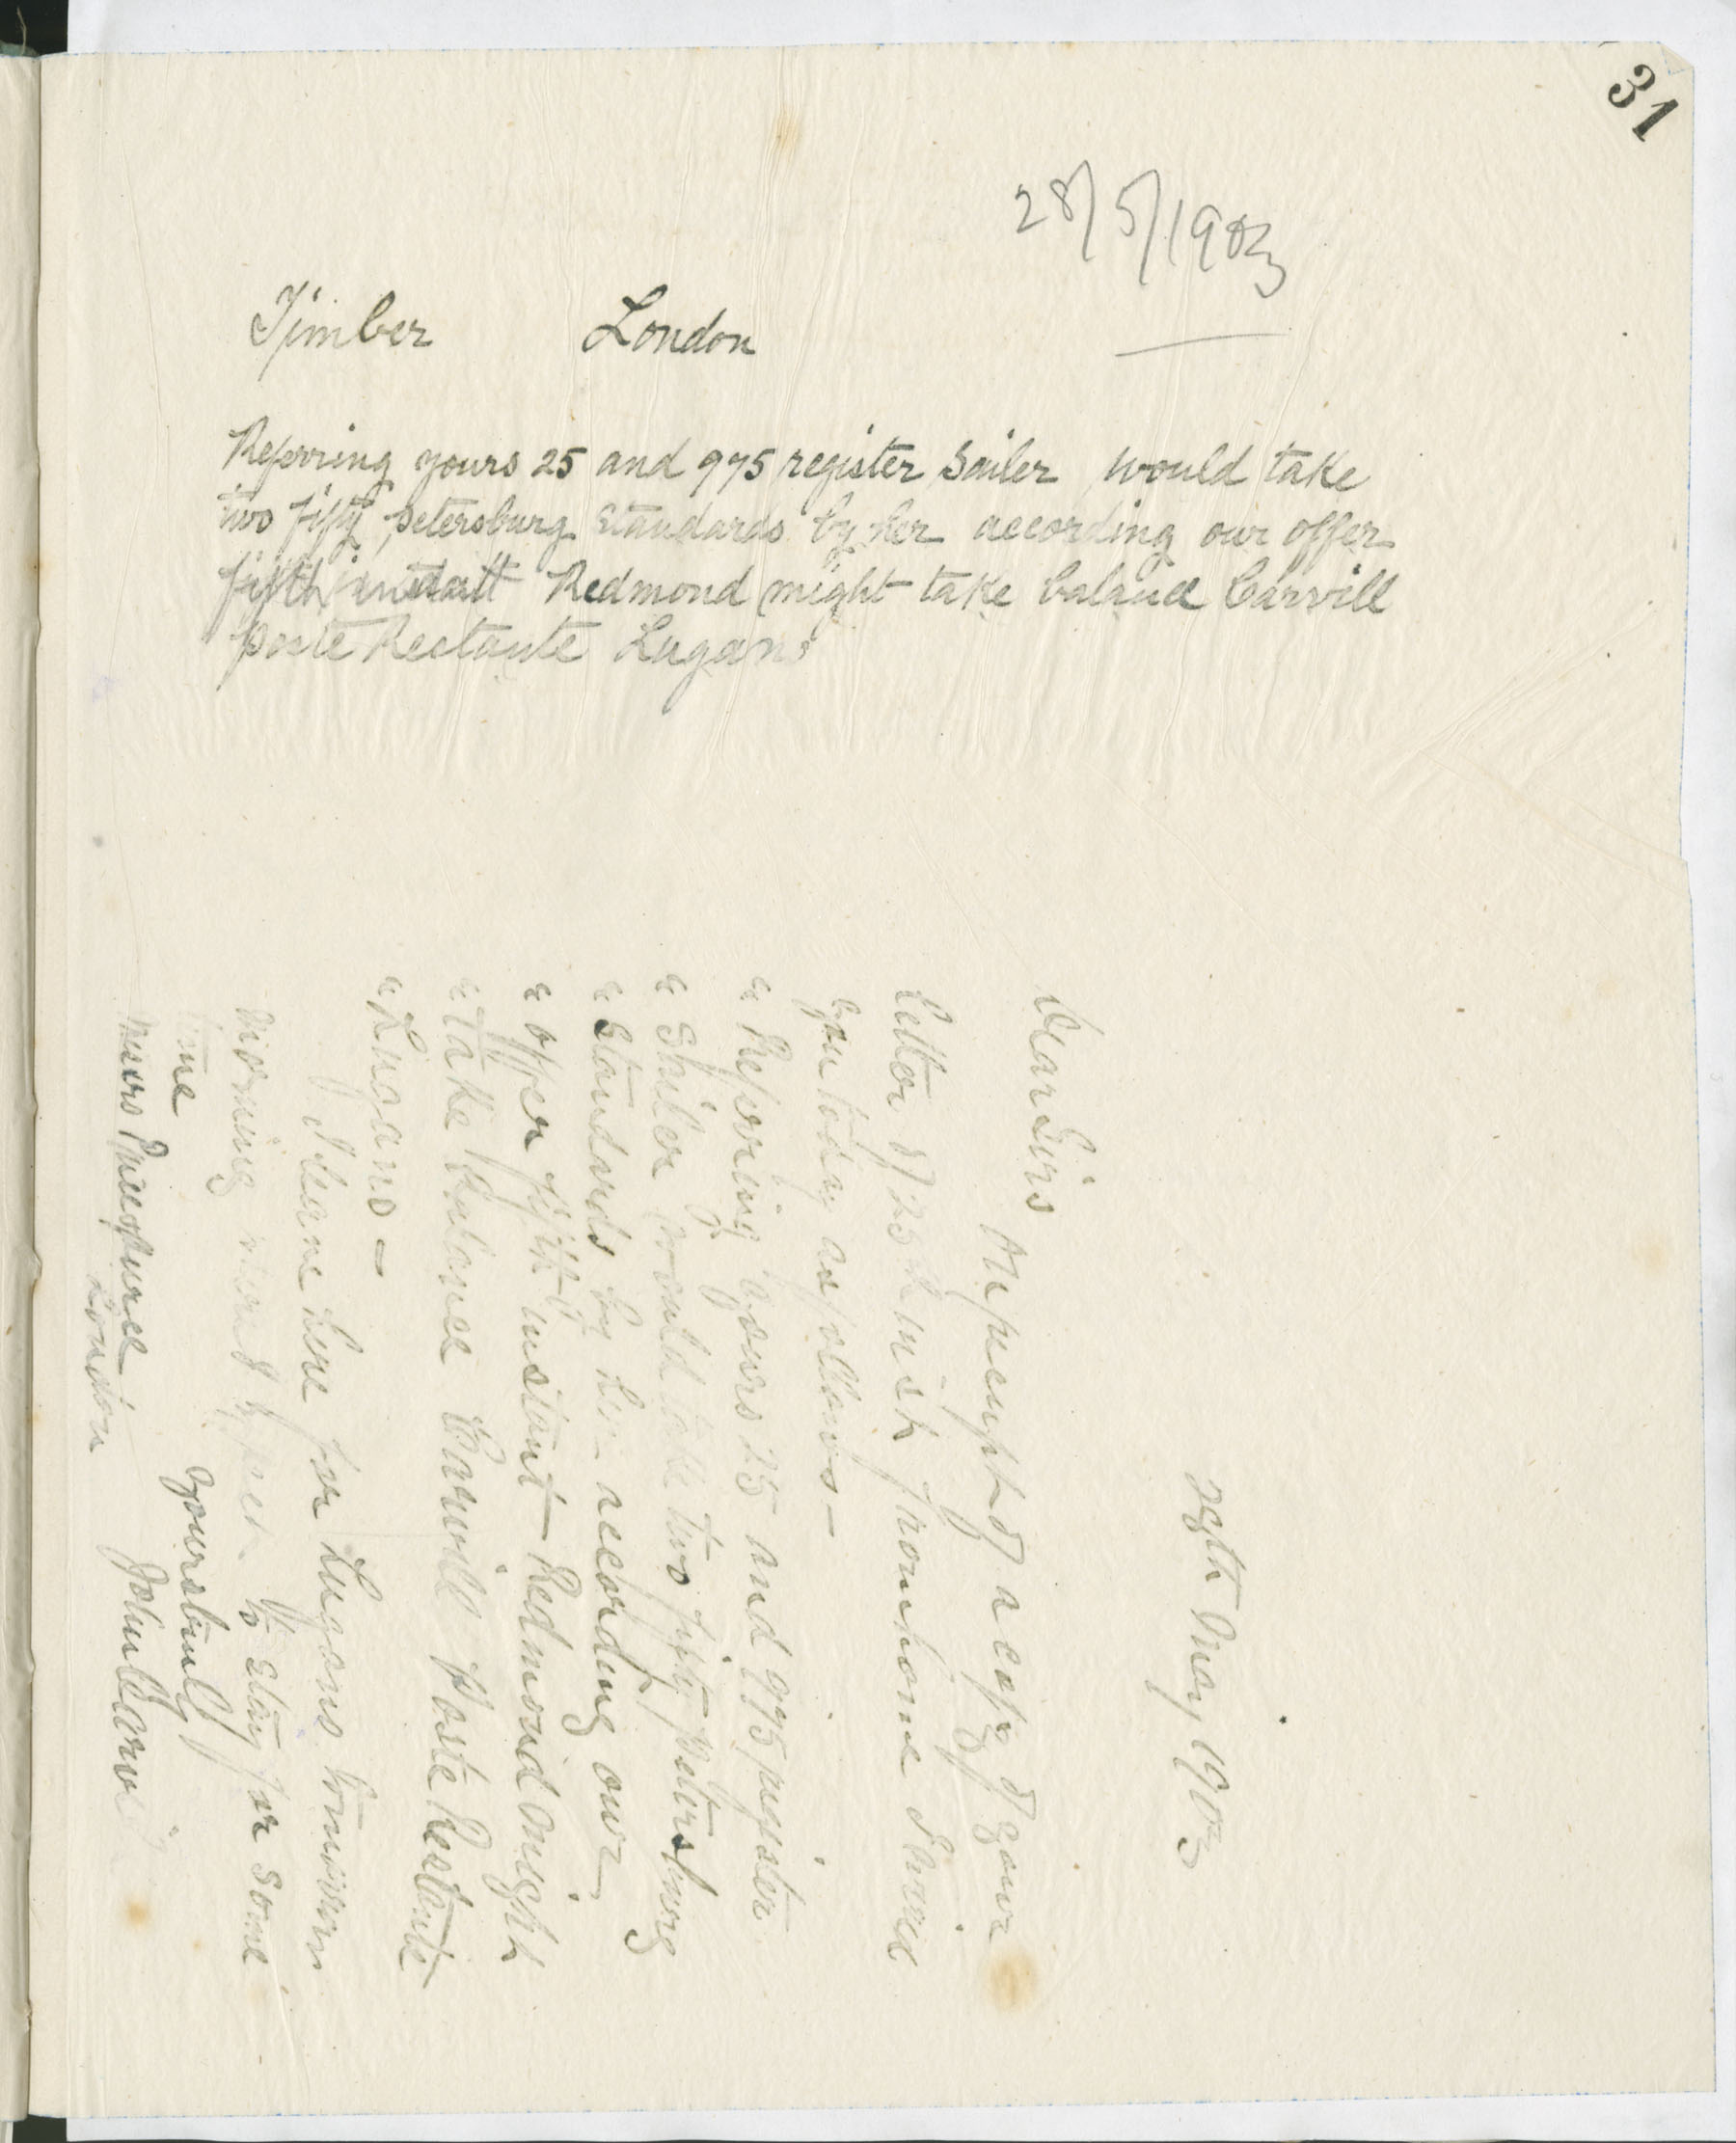 31
28/5/1903
Timber London
Referring yours 25 and 975 register Sailer would take
two fifty petersburg Standards by her according our offer
fifth instant Redmond might take balance Carvill
Poste Restante Lugano
28th May 1903
Dear Sirs
On receipt of a copy of your
letter of 25th inst from home I wired
you today as follows —
" Referring yours 25 and 975 register
" Sailer would take two fifty petersburg
" Standards by her according our
" offer fifth instant — Redmond might
" take balance Carvill Poste Restante
" Lugano —
I leave here for Lugano tomorrow
morning and expect to stay for some
time
Yours truly
John Carvill
Messrs Price & Pierce
London